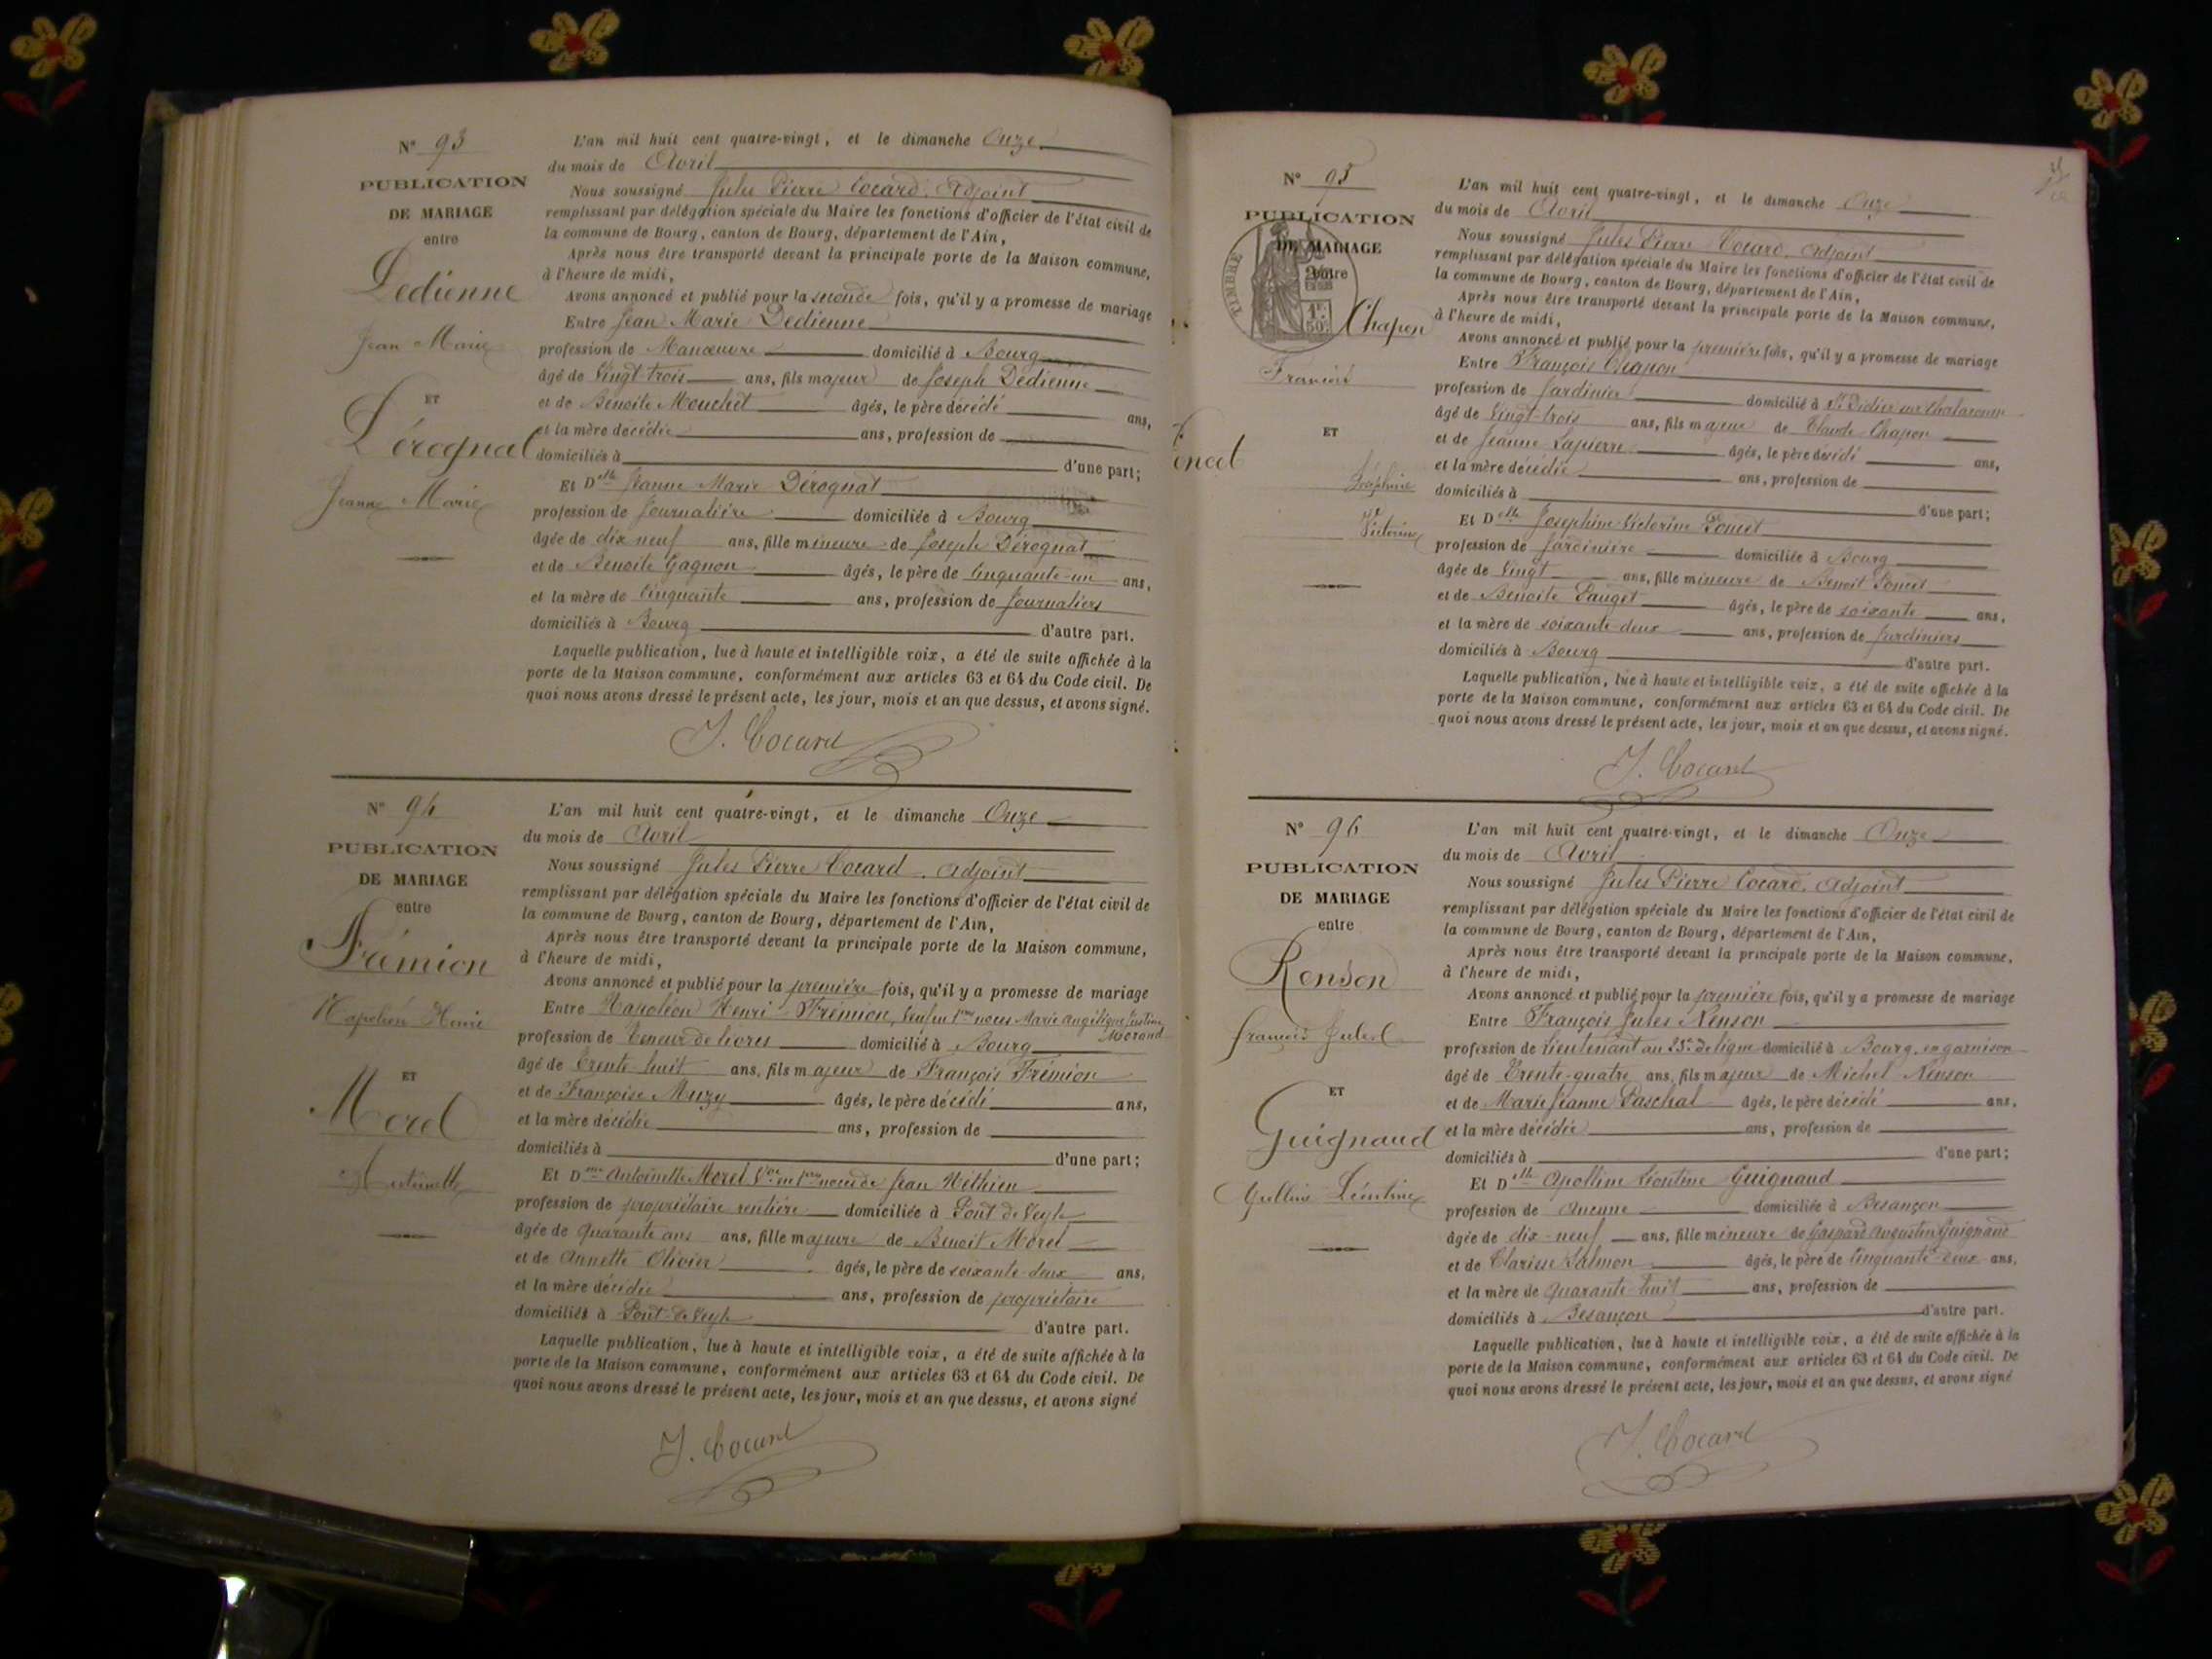 N° 93
PUBLICATION
DE MARIAGE
entre
Dedienne
Jean Marie
ET
Dérognat
Jeanne Marie
L'an mil huit cent quatre-vingt, et le dimanche Onze
du mois de Avril
Nous soussigné Jules Pierre Cocard, Adjoint
remplissant par délégation spéciale du Maire les fonctions d'officier de l'état civil de
la commune de Bourg, canton de Bourg, département de l'Ain,
Après nous être transporté devant la principale porte de la Maison commune,
à l'heure de midi,
Avons annoncé et publié pour la seconde fois, qu'il y a promesse de mariage
Entre Jean Marie Dedienne
profession de Manœuvre domicilié à Bourg
âgé de Vingt-trois ans, fils majeur de Joseph Dedienne
et de Benoite Mouchet âgés, le père décédé ans,
et la mère décédée ans, profession de
domiciliés à d'une part;
Et Dlle Jeanne Marie Dérognat
profession de Journalière domiciliée à Bourg
âgée de dix neuf ans, fille mineure de Joseph Dérognat
et de Benoite Gagnon âgés, le père de Cinquante-un ans,
et la mère de Cinquante ans, profession de Journaliers
domiciliés à Bourg d'autre part.
Laquelle publication, lue à haute et intelligible voix, a été de suite affichée à la
porte de la Maison commune, conformément aux articles 63 et 64 du Code civil. De
quoi nous avons dressé le présent acte, les jour, mois et an que dessus, et avons signé.
J. Cocard
N° 94
PUBLICATION
DE MARIAGE
entre
Frémion
Napoléon Henri
ET
Morel
Antoinette
L'an mil huit cent quatre-vingt, et le dimanche Onze
du mois de Avril
Nous soussigné Jules Pierre Cocard, Adjoint
remplissant par délégation spéciale du Maire les fonctions d'officier de l'état civil de
la commune de Bourg, canton de Bourg, département de l'Ain,
Après nous être transporté devant la principale porte de la Maison commune,
à l'heure de midi,
Avons annoncé et publié pour la première fois, qu'il y a promesse de mariage
Entre Napoléon Henri Frémion, Veuf en 1res noces Marie Angélique Justine
Morand
profession de Teneur de livres domicilié à Bourg
âgé de Trente-huit ans, fils majeur de François Frémion
et de Françoise Muzy âgés, le père décédé ans,
et la mère décédée ans, profession de
domiciliés à d'une part;
Et Dme Antoinette Morel Vve en 1res noces de Jean Néthien
profession de propriétaire rentière domiciliée à Pont de Veyle
âgée de Quarante ans ans, fille majeure de Benoit Morel
et de Annette Olivier âgés, le père de soixante-deux ans,
et la mère décédée ans, profession de propriétaire
domiciliés à Pont-de-Veyle d'autre part.
Laquelle publication, lue à haute et intelligible voix, a été de suite affichée à la
porte de la Maison commune, conformément aux articles 63 et 64 du Code civil. De
quoi nous avons dressé le présent acte, les jour, mois et an que dessus, et avons signé
J. Cocard
N° 95
PUBLICATION
DE MARIAGE
entre
TIMBRE
1F.
50c.
Chapon
François
ET
Joséphine
Victorine
L'an mil huit cent quatre-vingt, et le dimanche Onze
du mois de Avril
Nous soussigné Jules Pierre Cocard, Adjoint
remplissant par délégation spéciale du Maire les fonctions d'officier de l'état civil de
la commune de Bourg, canton de Bourg, département de l'Ain,
Après nous être transporté devant la principale porte de la Maison commune,
à l'heure de midi,
Avons annoncé et publié pour la première fois, qu'il y a promesse de mariage
Entre François Chapon
profession de Jardinier domicilié à St Didier sur Chalaronne
âgé de Vingt-trois ans, fils majeur de Claude Chapon
et de Jeanne Lapierre âgés, le père décédé ans,
et la mère décédée ans, profession de
domiciliés à d'une part;
Et Dlle Josephine Victorine Poncet
profession de Jardinière domiciliée à Bourg
âgée de Vingt ans, fille mineure de Benoit Poncet
et de Benoite Pauget âgés, le père de soixante ans,
et la mère de soixante-deux ans, profession de Jardiniers
domiciliés à Bourg d'autre part.
Laquelle publication, lue à haute et intelligible voix, a été de suite affichée à la
porte de la Maison commune, conformément aux articles 63 et 64 du Code civil. De
quoi nous avons dressé le présent acte, les jour, mois et an que dessus, et avons signé.
J. Cocard
N° 96
PUBLICATION
DE MARIAGE
entre
Renson
François Jules
ET
Guignaud
Apolline Léontine
L'an mil huit cent quatre-vingt, et le dimanche Onze
du mois de Avril
Nous soussigné Jules Pierre Cocard, Adjoint
remplissant par délégation spéciale du Maire les fonctions d'officier de l'état civil de
la commune de Bourg, canton de Bourg, département de l'Ain,
Après nous être transporté devant la principale porte de la Maison commune,
à l'heure de midi,
Avons annoncé et publié pour la première fois, qu'il y a promesse de mariage
Entre François Jules Renson
profession de Lieutenant au 23e de ligne domicilié à Bourg, en garnison
âgé de Trente-quatre ans, fils majeur de Michel Renson
et de Marie Jeanne Paschal âgés, le père décédé ans,
et la mère décédée ans, profession de
domiciliés à d'une part;
Et Dlle Apolline Léontine Guignaud
profession de Aucune domiciliée à Besançon
âgée de dix-neuf ans, fille mineure de Gaspard Augustin Guignaud
et de Clarisse Salmon âgés, le père de Cinquante-deux ans,
et la mère de Quarante-huit ans, profession de
domiciliés à Besançon d'autre part.
Laquelle publication, lue à haute et intelligible voix, a été de suite affichée à la
porte de la Maison commune, conformément aux articles 63 et 64 du Code civil. De
quoi nous avons dressé le présent acte, les jour, mois et an que dessus, et avons signé
J. Cocard